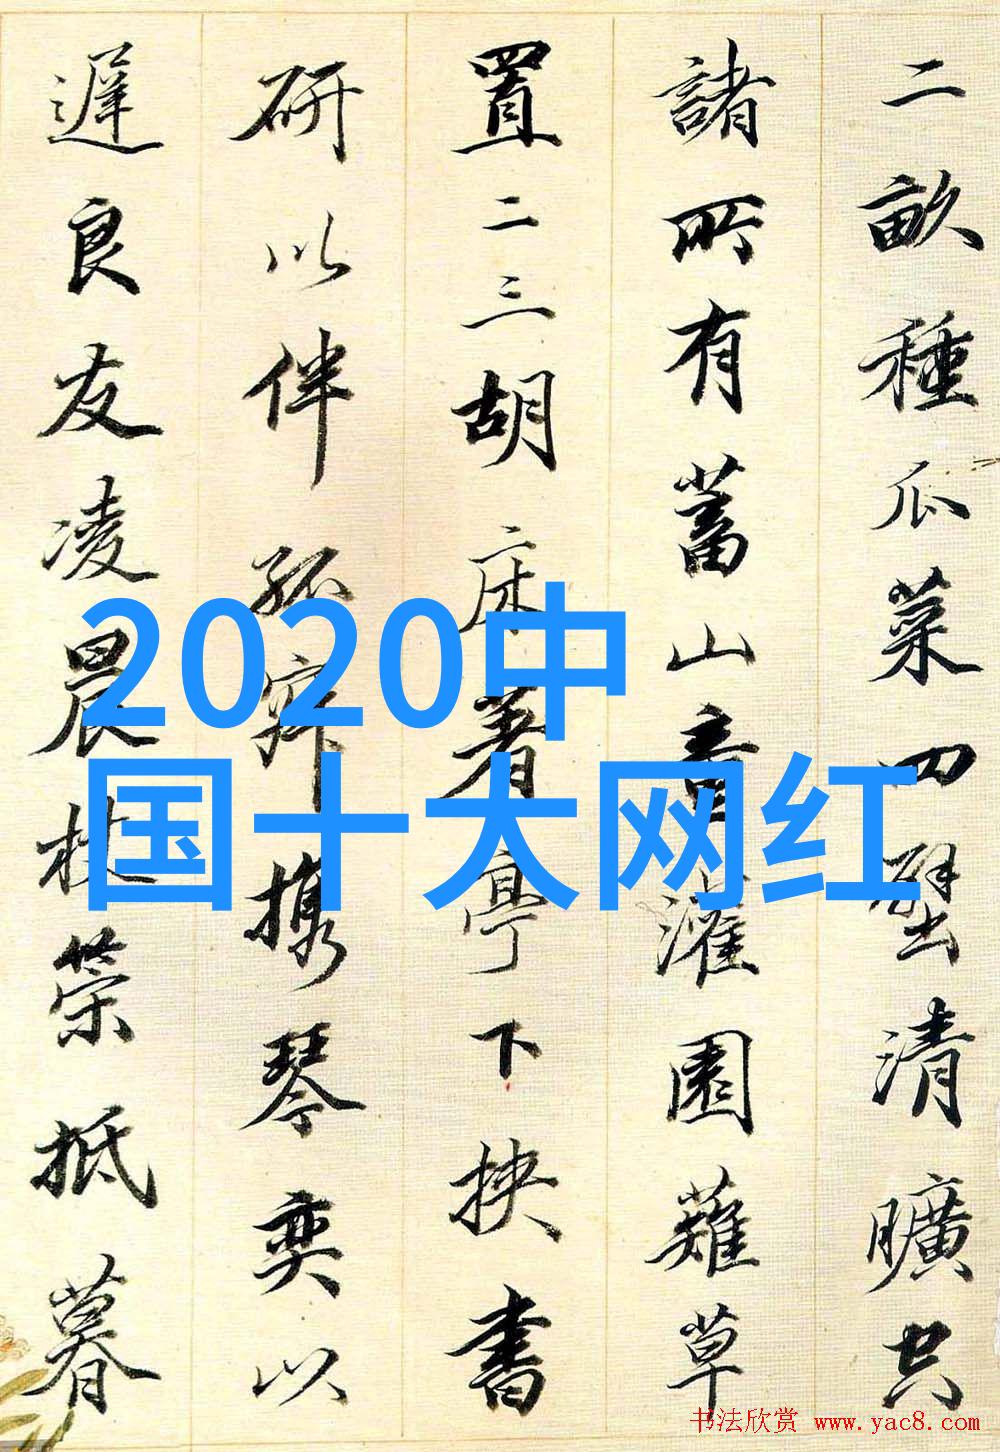 二畝種瓜菜四壁清曠空
諸所有蓄山童灌園薙草
置二三胡床著亭下挾書
研以伴孤寂携琴奕以
遲良友凌晨杖策抵暮
2020中
国十大网红
书法欣赏 www.yac8.com